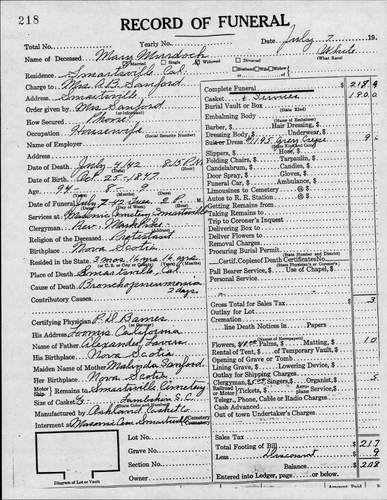 218
RECORD OF FUNERAL
Total No.
Yearly No.
Date July 7 19
Name of Deceased Mary Murdoch
White
(What Race)
Married Single Widowed Divorced
Residence Smartsville, Cal.
Charge to Mrs. A.B. Sanford
Address Smartsville
Order given by Mrs. Sanford
How Secured Phone
Occupation Housewife
(Social Security Number)
Name of Employer
Address
Date of Death July 4, 42 8:15 P.M.
Date of Birth Oct. 25 - 1847
Age 94 - 8 - 9
Date of Funeral July 7, 42 Tues. 2 P. M.
Services at Masonic Cemetery Smartsville
Clergyman Rev. Mark
Religion of the Deceased Protestant
Birthplace Nova Scotia
Resided in the State
Place of Death Smartsville, Cal.
Cause of Death Bronchopneumonia
2 days
Contributory Causes
Certifying Physician P.D. Barnes
His Address Loomis California
Name of Father Alexander
His Birthplace Nova Scotia
Maiden Name of Mother Malynda Sanford
Her Birthplace Nova Scotia
Motor Remains to Smartsville Cemetery
Size of Casket
Manufactured by Oakland Casket Co.
Interment at Masonic Cem. Smartsville
Cemetery
Lot No.
Grave No.
Section No.
Owner
Diagram of Lot or Vault
Complete Funeral $ 218
& Services 190
Burial Vault or Box
(State Kind)
Embalming Body
(Name of Embalmer)
Barber, $ Hair Dressing, $
Dressing Body, $ Underwear, $
9
Slippers, $ Hose, $
Folding Chairs, $ Tarpaulin, $
Candelabrum, $ Candles, $
Door Spray, $ Gloves, $
Funeral Car, $ Ambulance, $
Limousines to Cemetery @ $
Autos to R. R. Station @ $
Getting Remains from
Taking Remains to
Trip to Coroner's Inquest
Delivering Box to
Deliver Flowers to
Removal Charges
Procuring Burial Permit
Certif. Copies of Death Certificates No.
Pall Bearer Service, $ Use of Chapel, $
Personal Service
Gross Total for Sales Tax $ 3
Outlay for Lot
Cremation
line Death Notices in Papers
(Names of Newspapers)
Flowers, $ Palms, $ Matting, $ 10
Rental of Tent, $ of Temporary Vault, $
Opening of Grave or Tomb
Lining Grave, $ Lowering Device, $
Outlay for Shipping Charges
Clergyman, $ Singers, $ Organist, $ 5
Railroad Motor Tickets, $ Aeroplane Service, $
Telegr., Phone, Cable or Radio Charges
Cash Advanced
Out of town Undertaker's Charges
Sales Tax
Total Footing of Bill $ 217
Less Discount $ 9
Balance $ 208
Entered into Ledger, page or below.